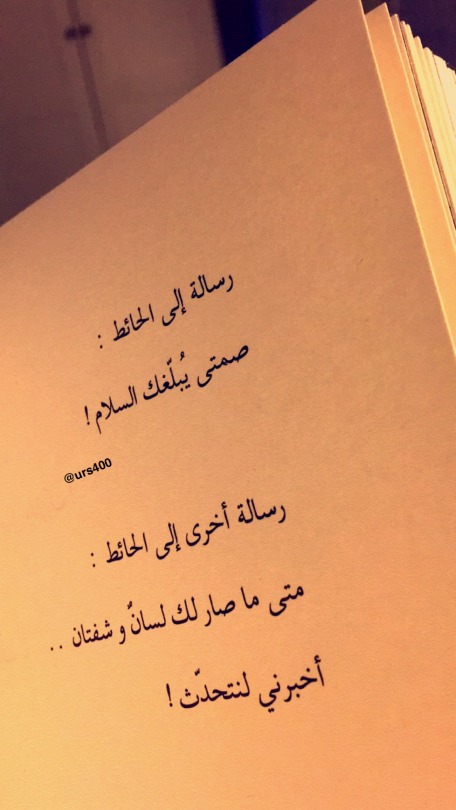 رسالة إلى الحائط :
صمتى يُبلّغك السلام !
@urs400
رسالة أخرى إلى الحائط :
متى ما صار لك لسانٌ و شفتان ..
أخبرني لنتحدّث !